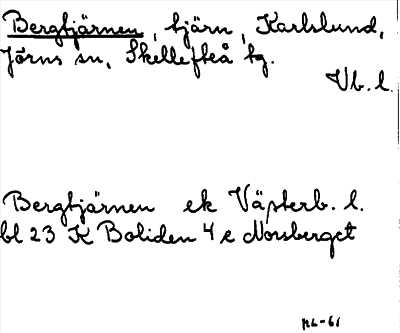 Bergtjärnen, tjärn, Karlslund,
Jörns sn, Skellefteå tg.
Vb. l.
Bergtjärnen ek Västerb. l.
bl 23 K Boliden 4 e Norsberget